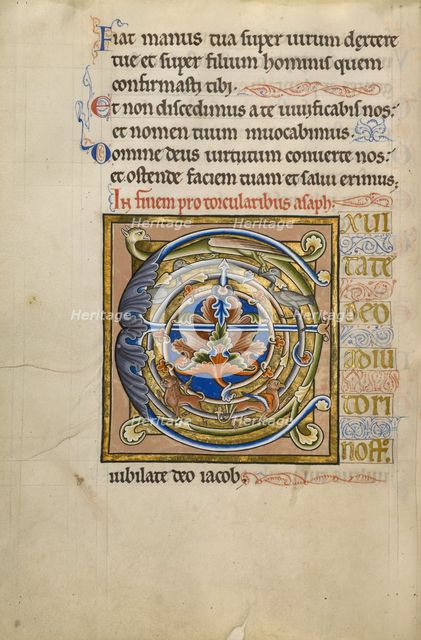 Fiat manus tua super uirum dextere
tue et super filium hominis quem
confirmasti tibi.
Et non discedimus a te uiuificabis nos:
et nomen tuum inuocabimus.
Domine deus uirtutum conuerte nos:
et ostende faciem tuam et salui erimus;
In finem pro torcularibus asaph.
EXUL
TATE
DEO
ADIU
TORI
NOSTR.
iubilate deo iacob.